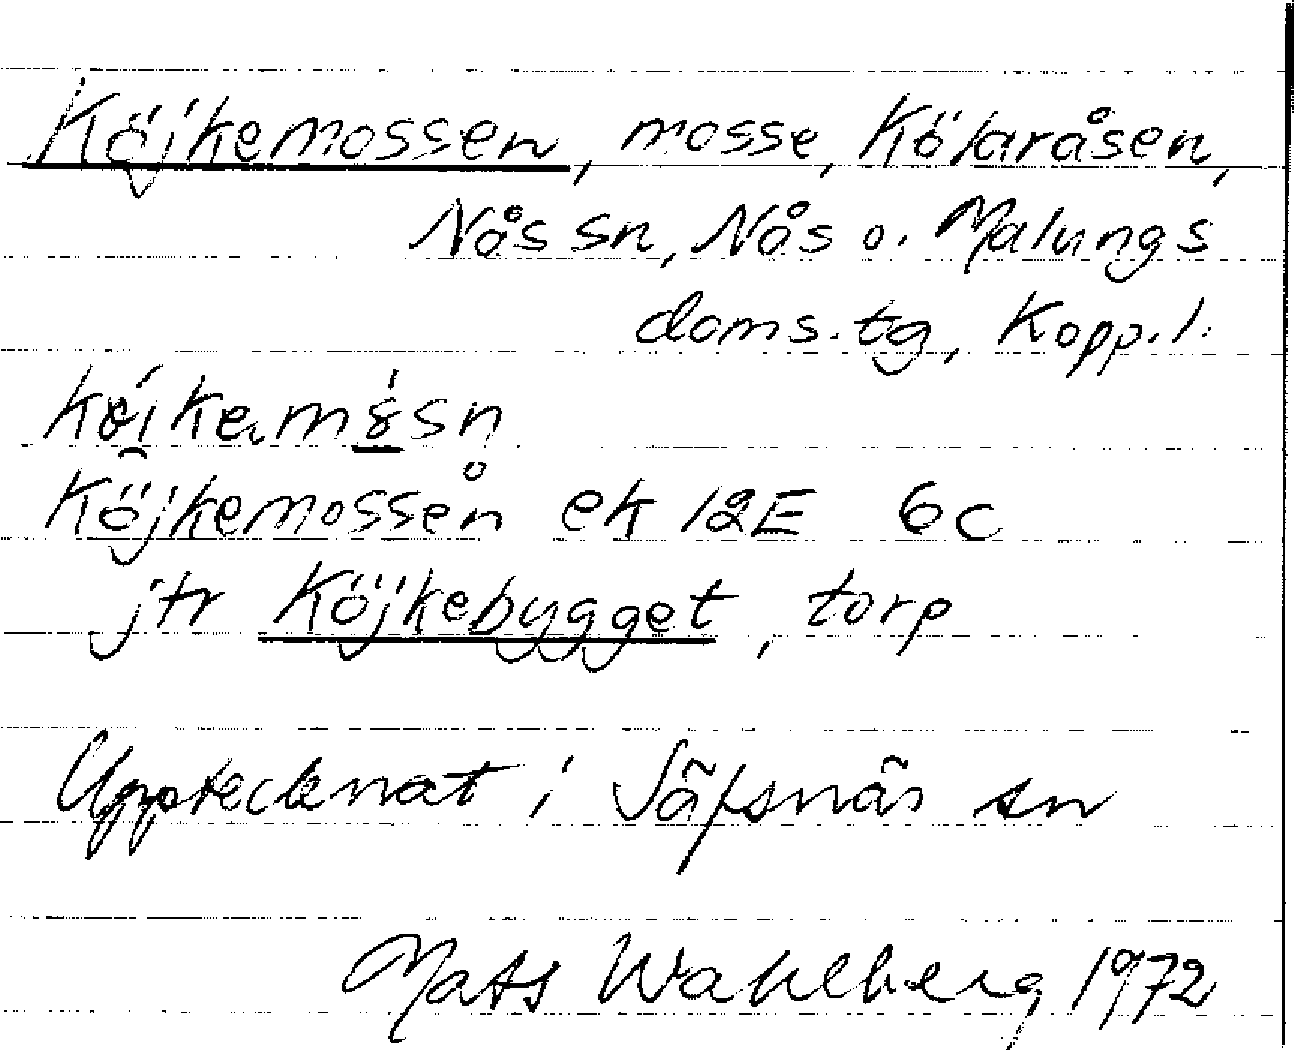 Köjkemossen, mosse, Kölaråsen,
Nås sn, Nås o. Malungs
doms.tg, Kopp.l.
Köjkemossen ek 12E 6c
jfr Köjkebygget, torp
Upptecknat i Säfsnäs sn
Mats Wahlberg 1972